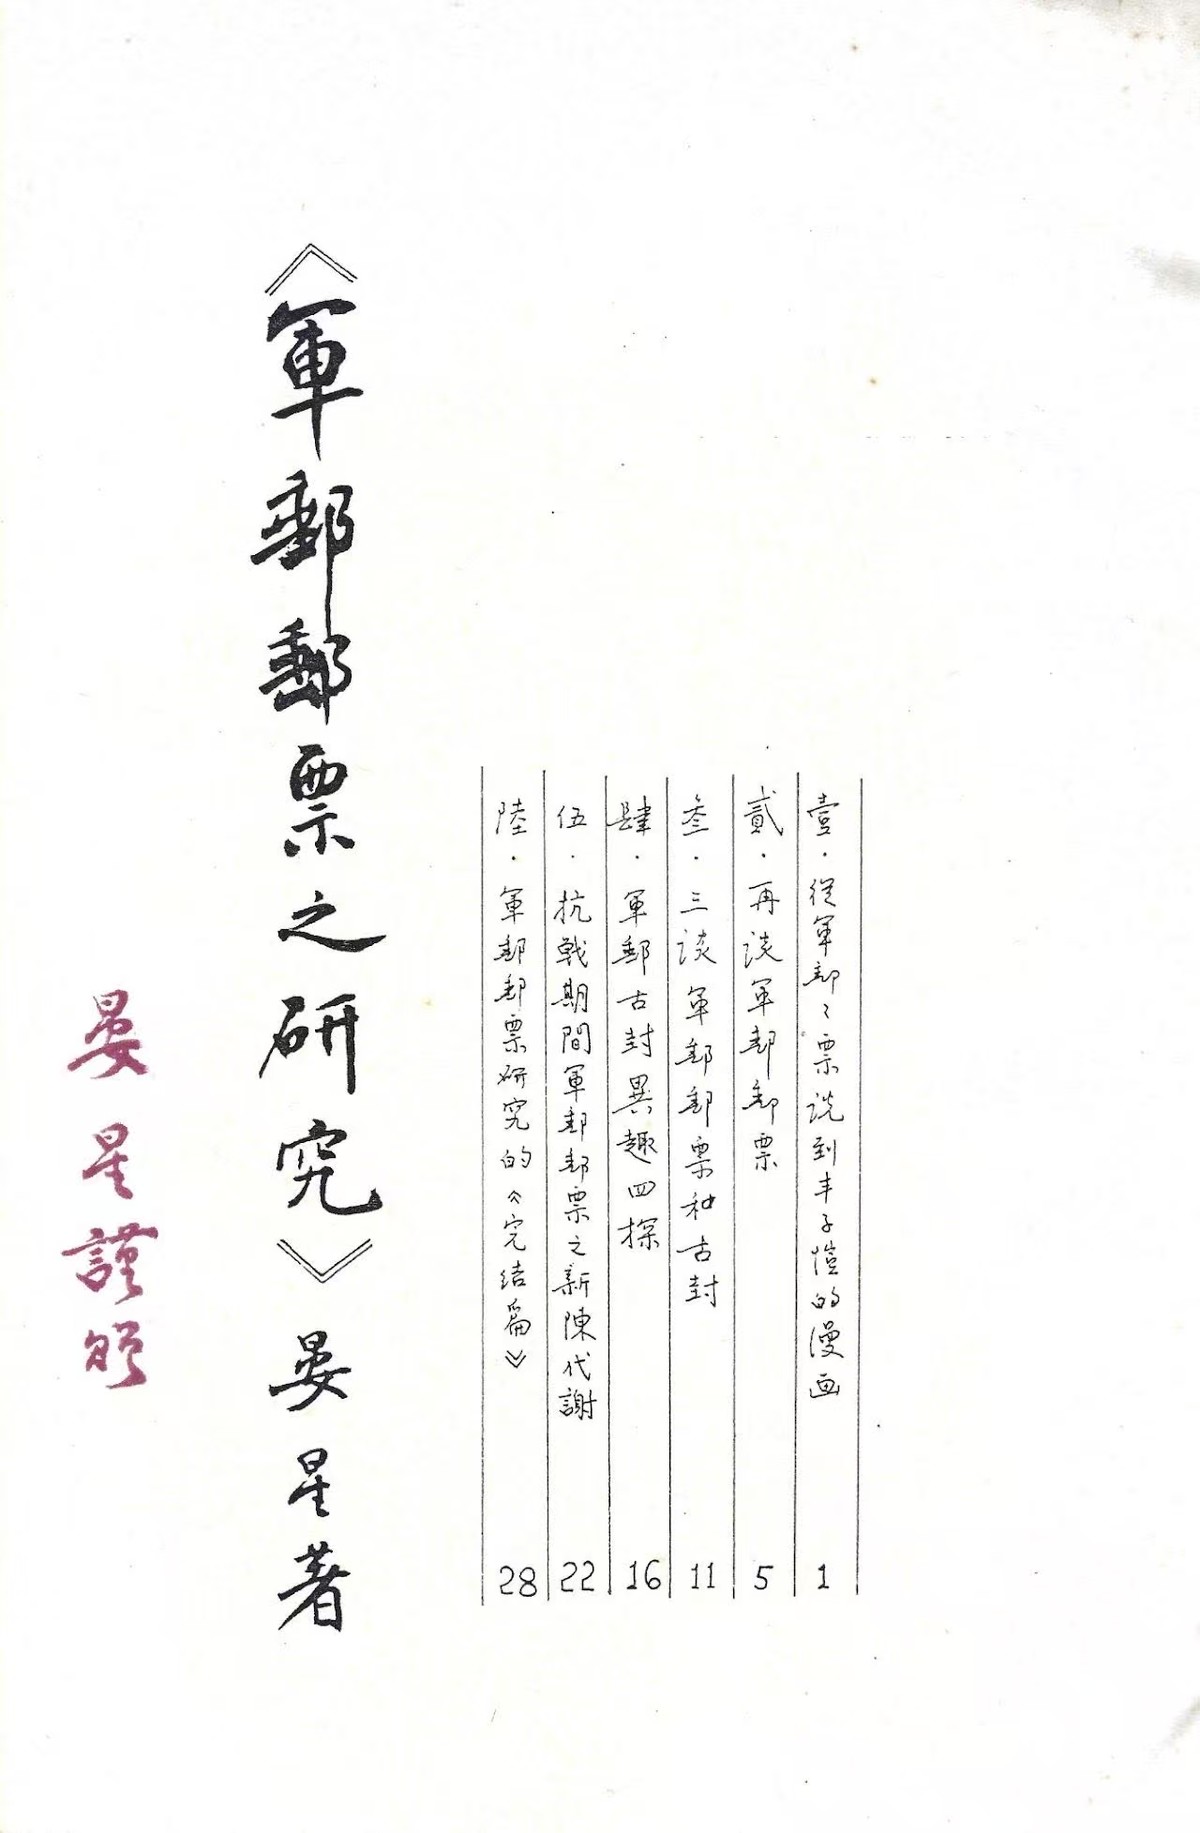 壹．從軍郵々票说到丰子愷的漫画 1
貳．再谈軍郵郵票 5
叁．三谈軍郵郵票和古封 11
肆．軍郵古封異趣四探 16
伍．抗戰期間軍郵郵票之新陳代謝 22
陸．軍郵郵票研究的《完结篇》 28
《軍郵郵票之研究》晏星著
晏星謹贈